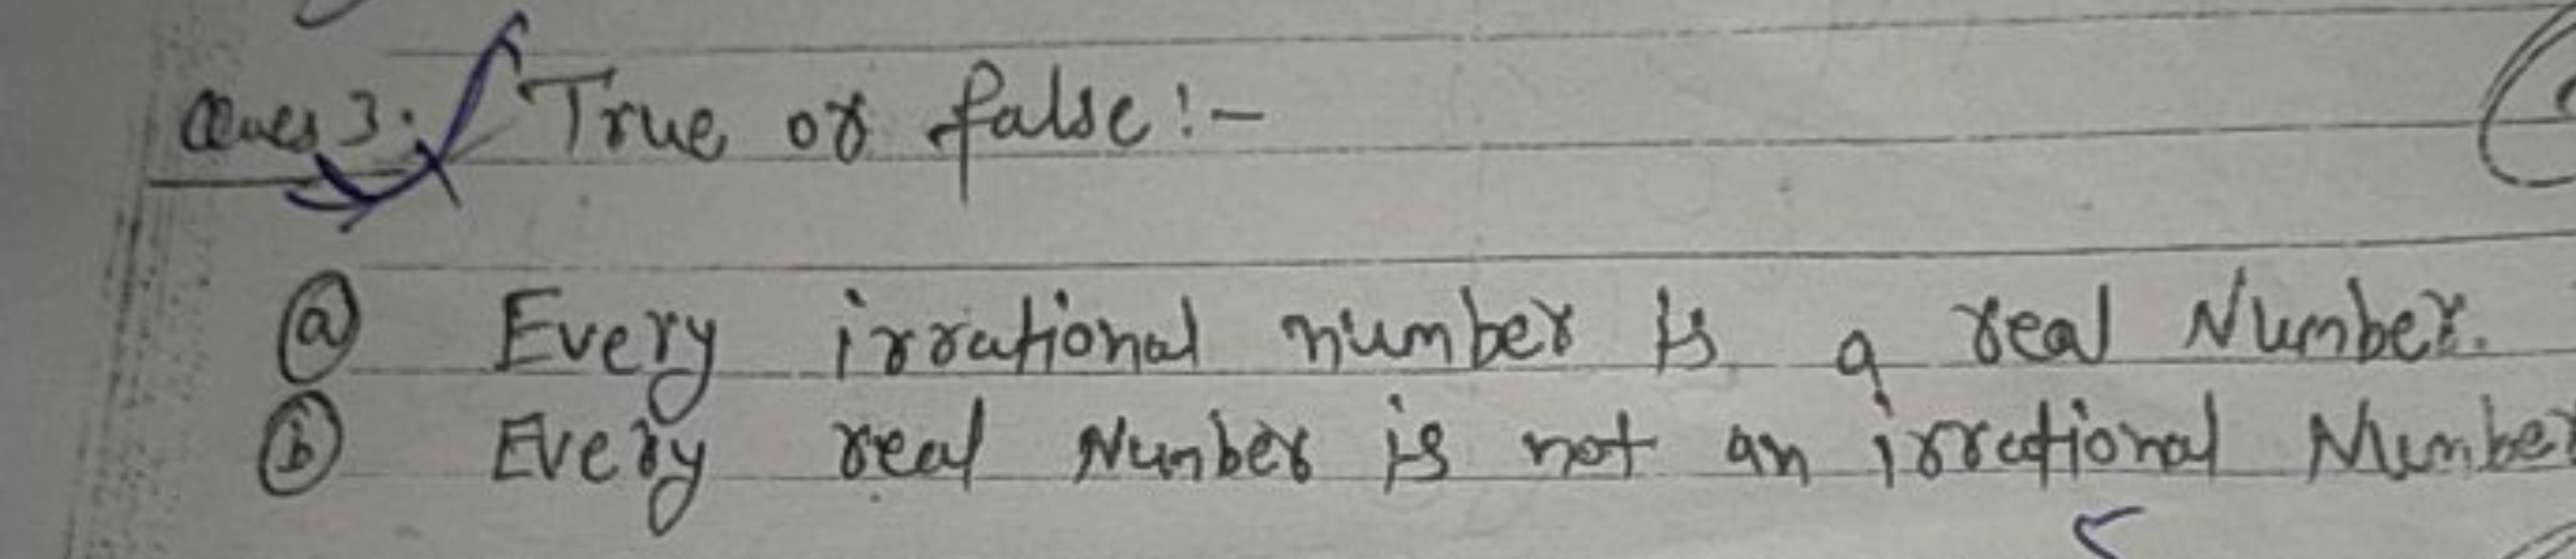 Ques 3. True or false:-
(a) Every irrational number is a real Number.
(b) Every real Number is not an irrational Number